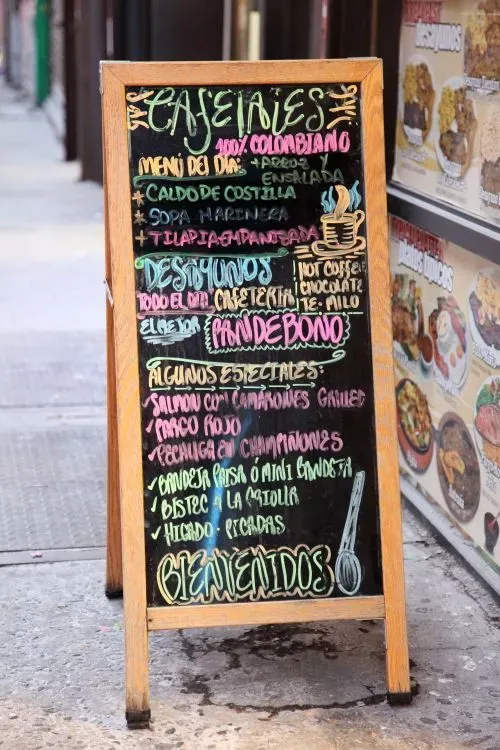 CAFETALES
100% COLOMBIANO
MENÚ DEL DIA: +ARROZ Y ENSALADA
* CALDO DE COSTILLA
* SOPA MARINERA
* TILAPIA EMPANIZADA
DESAYUNOS
TODO EL DIA CAFETERIA
HOT COFFEE
CHOCOLATE
TE · MILO
EL MEJOR PANDEBONO
ALGUNOS ESPECIALES:
✓SALMON CON CAMARONES GRILLED
✓PARGO ROJO
✓PECHUGA EN CHAMPIÑONES
✓BANDEJA PAISA Ó MINI BANDEJA
✓BISTEC A LA CRIOLLA
✓HIGADO · PICADAS
BIENVENIDOS